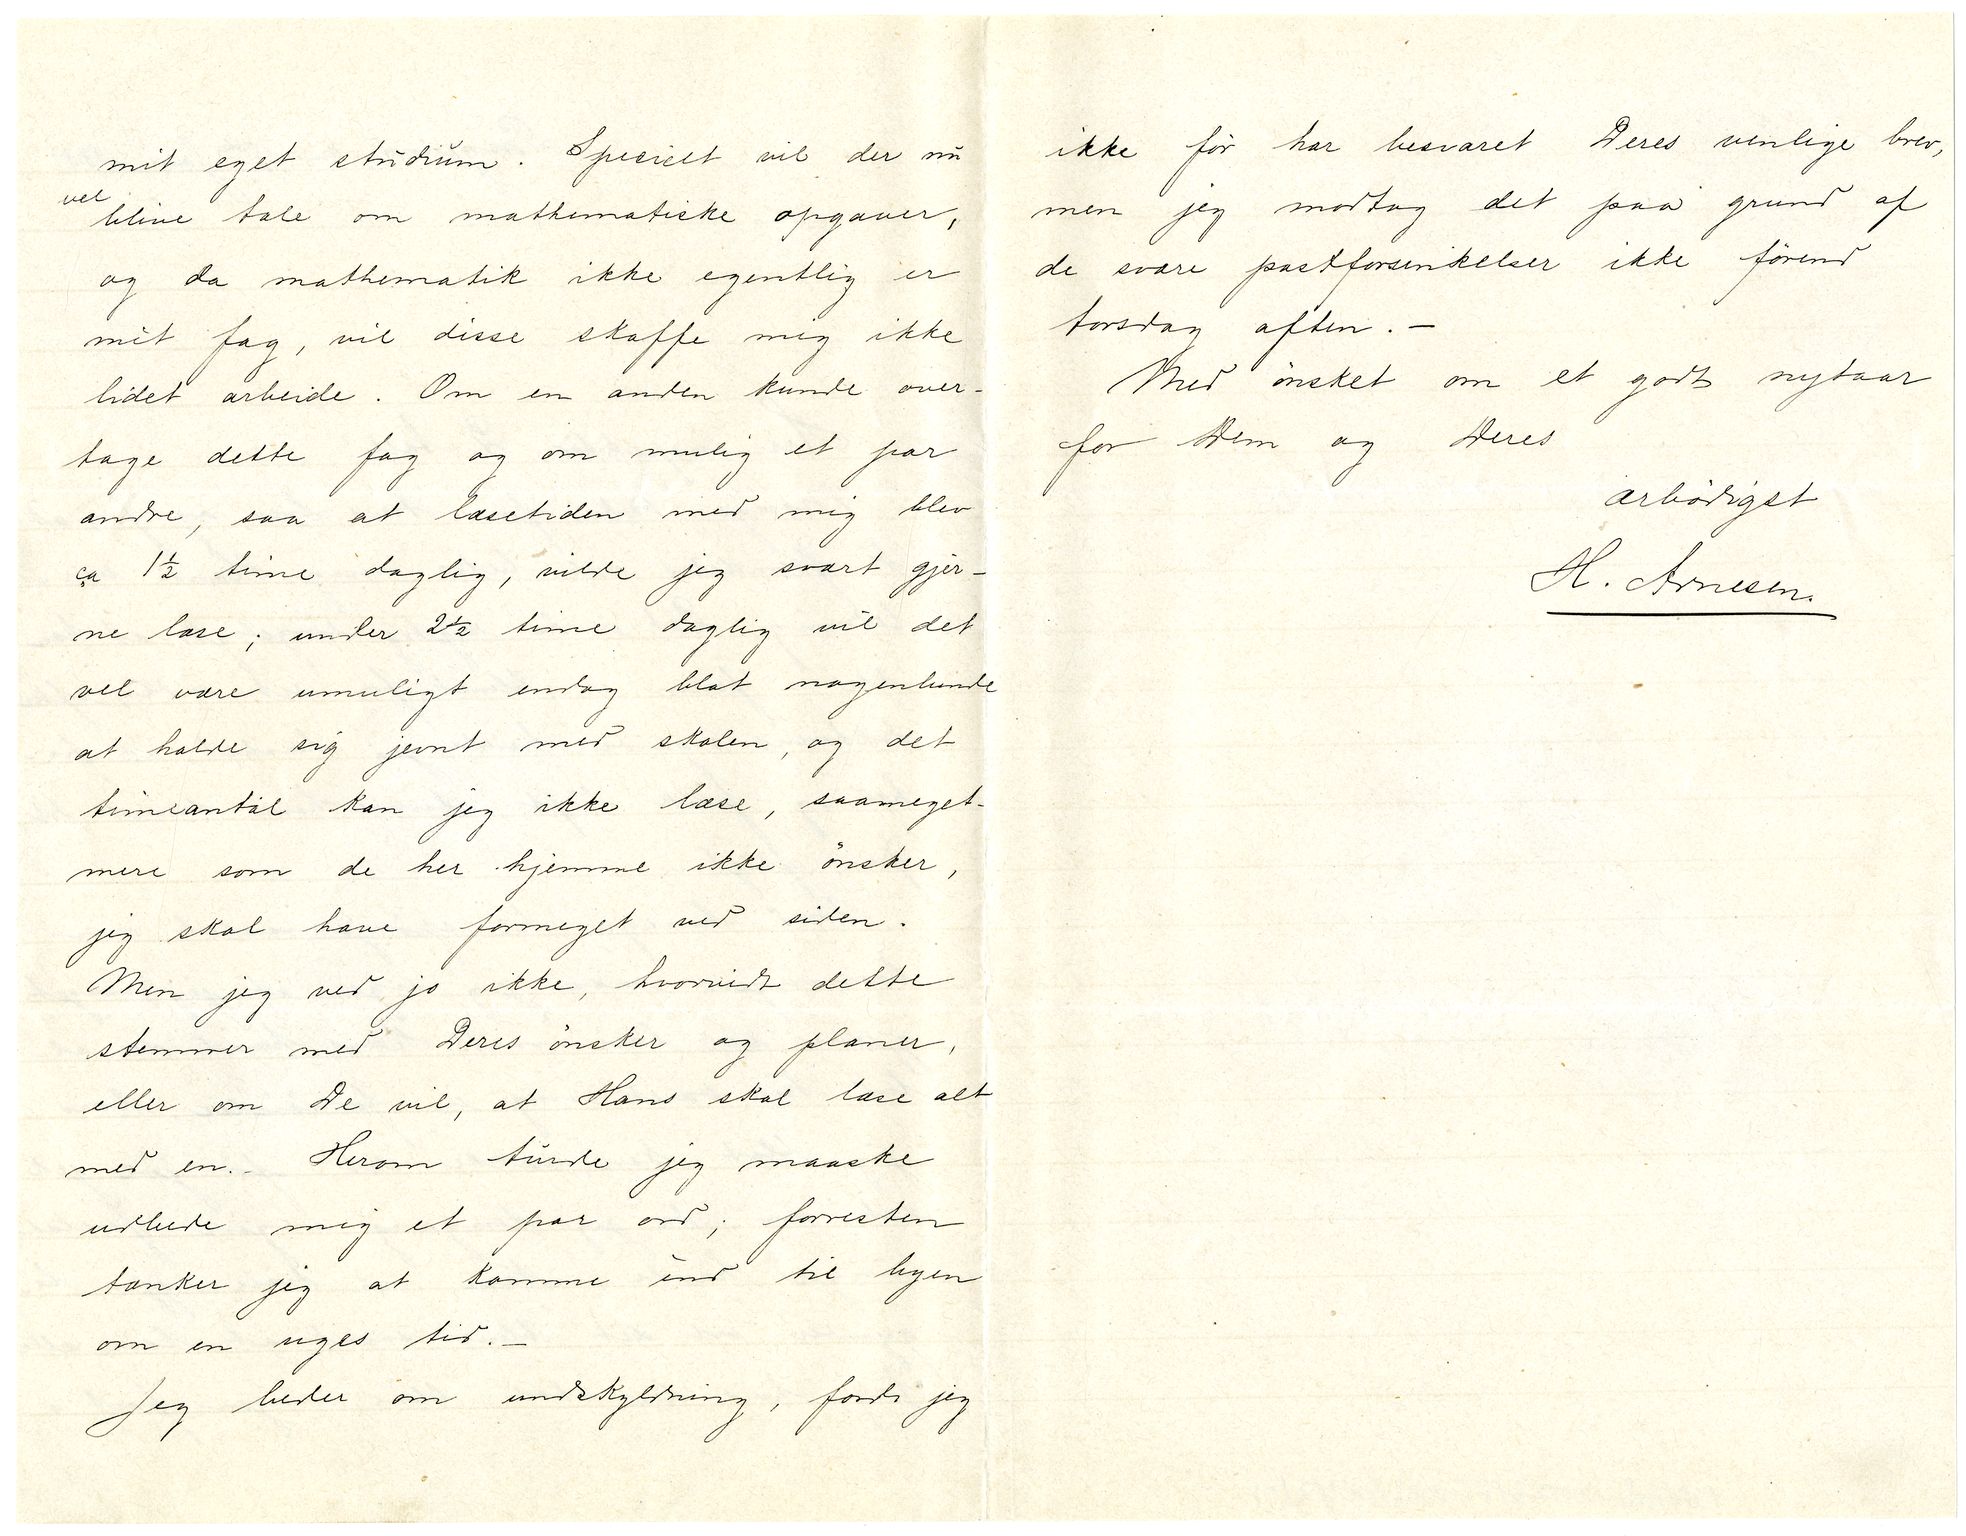 mit eget studium. Specielt vil der nu
vel
blive tale om mathematiske opgaver,
og da mathematik ikke egentlig er
mit fag, vil disse skaffe mig ikke
lidet arbeide. Om en anden kunde over-
tage dette fag og om mulig et par
andre, saa at læsetiden med mig blev
ca 1½ time daglig, vilde jeg svært gjer-
ne læse; under 2½ time daglig vil det
vel være umuligt endog blot nogenlunde
at holde sig jevnt med skolen, og det
timeantal kan jeg ikke læse, saameget-
mere som de her hjemme ikke ønsker,
jeg skal have formeget ved siden.
Men jeg ved jo ikke, hvorvidt dette
stemmer med Deres ønsker og planer,
eller om De vil, at Hans skal læse alt
med en. Herom turde jeg maaske
udbede mig et par ord; forresten
tænker jeg at komme ind til byen
om en uges tid. –
Jeg beder om undskyldning, fordi jeg
ikke før har besvaret Deres venlige brev,
men jeg modtog det paa grund af
de svære postforsinkelser ikke førend
torsdag aften. –
Med ønsket om et godt nytaar
for Dem og Deres
ærbødigst
H. Arnesen.